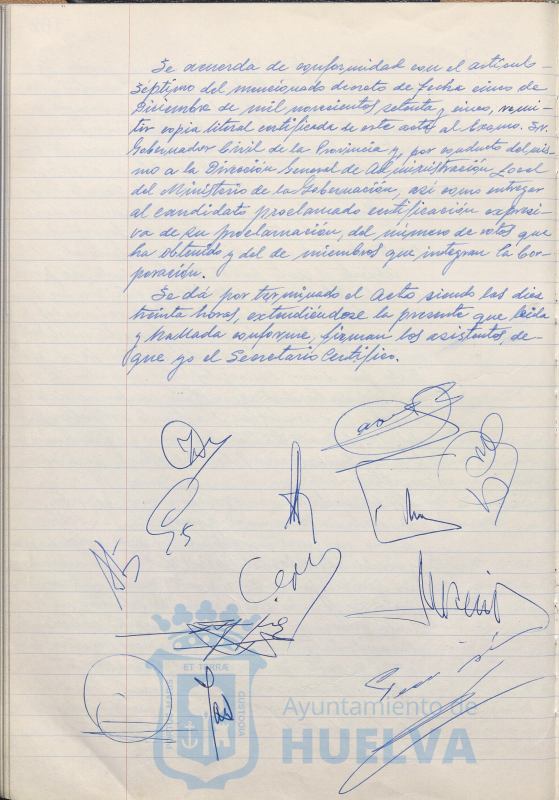 Se acuerda de conformidad con el artículo
Séptimo del mencionado decreto de fecha cinco de
Diciembre de mil novecientos setenta y cinco, remi-
tir copia literal certificada de este acta, al Excmo. Sr.
Gobernador Civil de la Provincia y, por conducto del mis-
mo a la Dirección General de Administración Local
del Ministerio de la Gobernación, así como entregar
al candidato proclamado certificación expresi-
va de su proclamación, del número de votos que
ha obtenido y del de miembros que integran la Cor-
poración.
Se dá por terminado el Acto siendo las diez
treinta horas, extendiéndose la presente que leida
y hallada conforme, firman los asistentes, de
que yo el Secretario Certifico.
ET TERRÆ
CUSTODIA
Ayuntamiento de
HUELVA